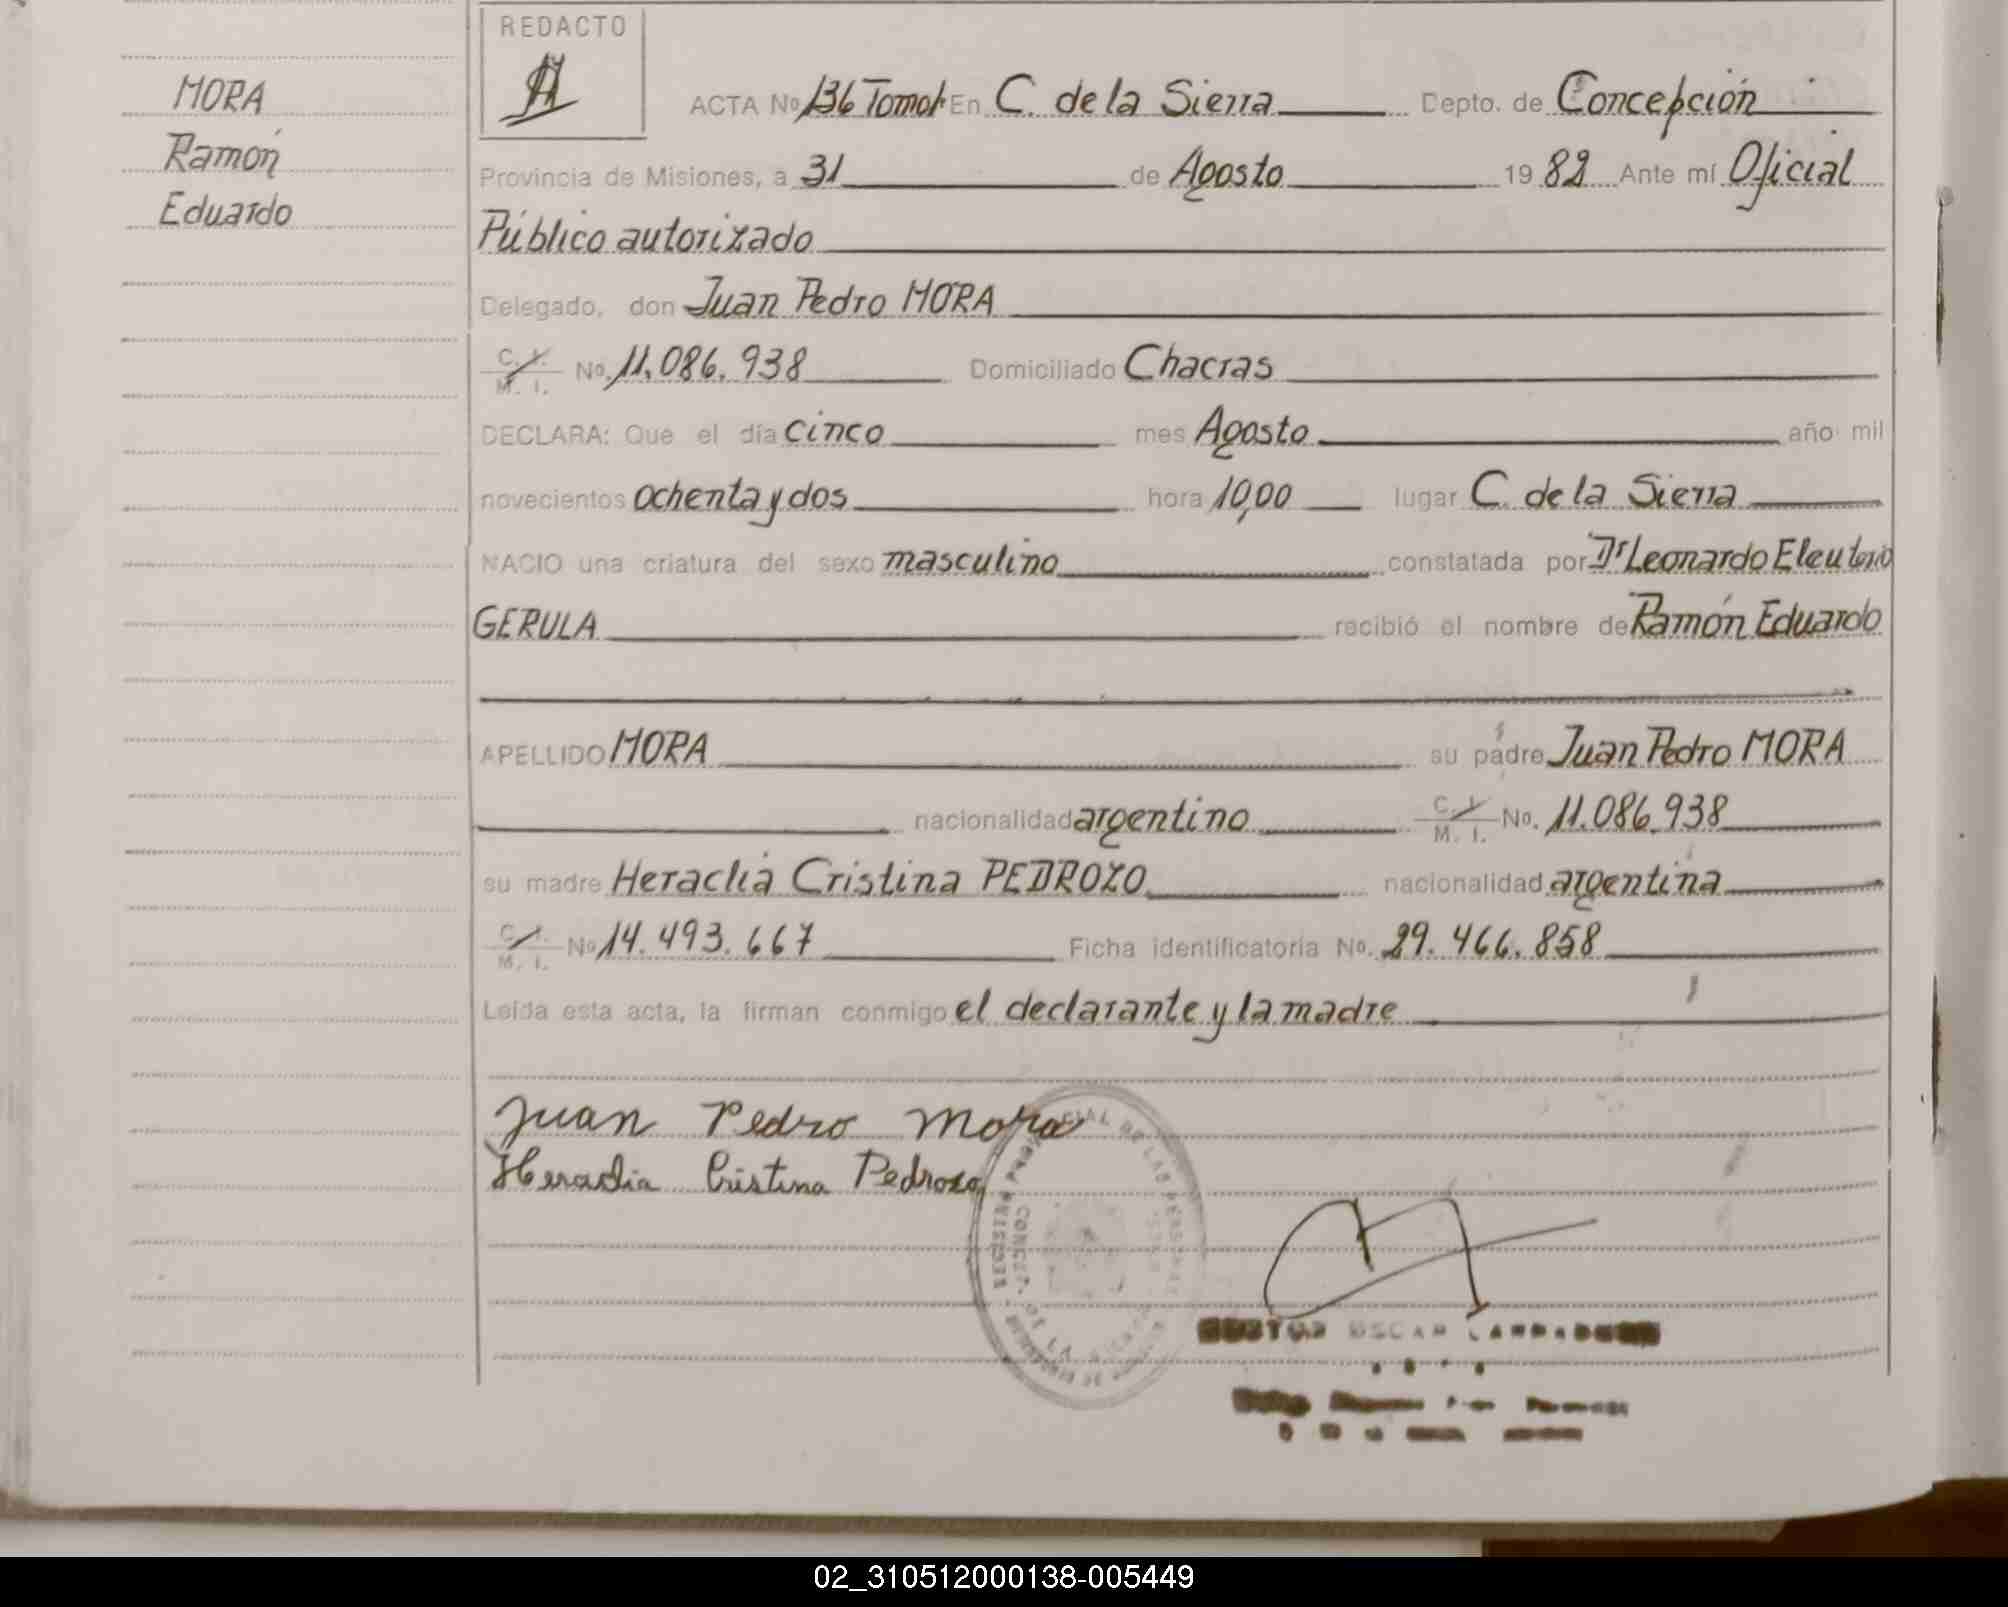 MORA
Ramón
Eduardo
REDACTO
ACTA No 136 Tomo I En C. de la Sierra Depto. de Concepción
Provincia de Misiones, a 31 de Agosto 1982 Ante mí Oficial
Público autorizado
Delegado, don Juan Pedro MORA
C. I. M. I. No. 11.086.938 Domiciliado Chacras
DECLARA: Que el día cinco mes Agosto año mil
novecientos ochenta y dos hora 10,00 lugar C. de la Sierra
NACIO una criatura del sexo masculino constatada por Dr Leonardo Eleuterio
GERULA recibió el nombre de Ramón Eduardo
APELLIDO MORA su padre Juan Pedro MORA
nacionalidad argentino C. I. M. I. No. 11.086.938
su madre Heraclia Cristina PEDROZO nacionalidad argentina
C. I. M. I. No 14.493.667 Ficha identificatoria No. 29.466.858
Leída esta acta, la firman conmigo el declarante y la madre
Juan Pedro Mora
Heraclia Cristina Pedrozo
REGISTRO PROVINCIAL DE LAS PERSONAS
CONCEP. DE LA
OSCAR
02_310512000138-005449